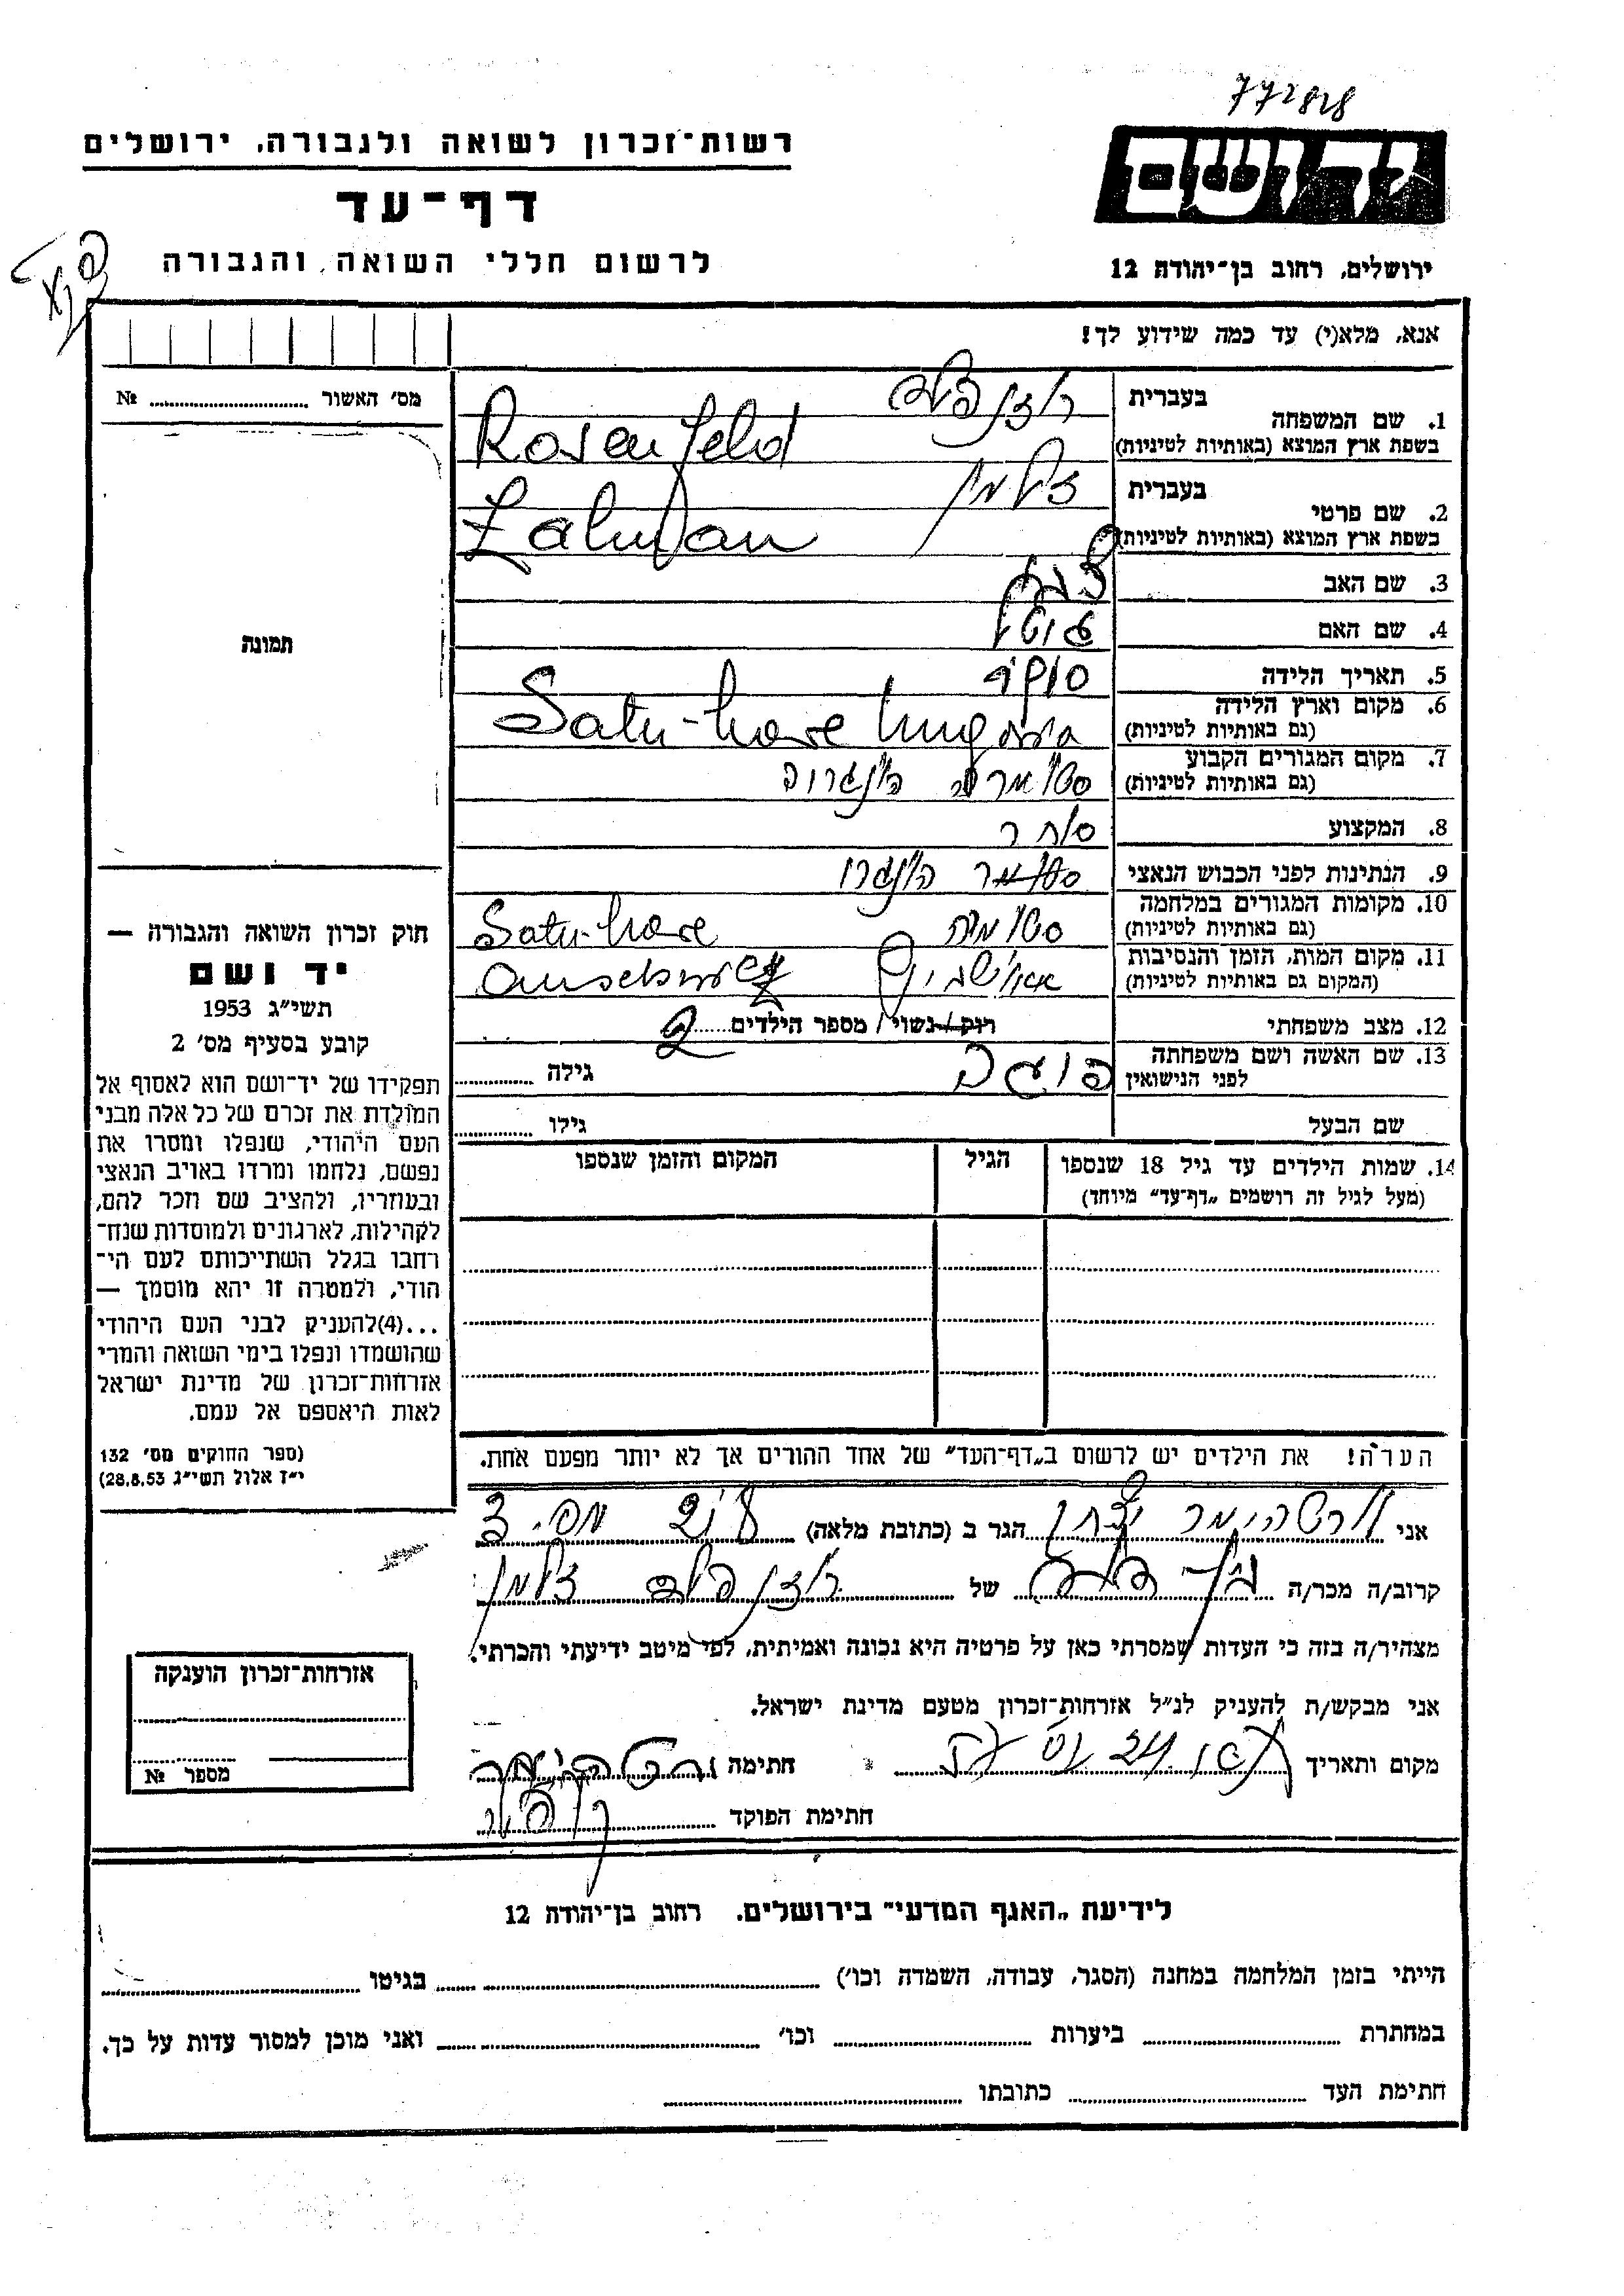 772828
יד ושם
רשות־זכרון לשואה ולגבורה, ירושלים
דף־עד
לרשום חללי השואה והגבורה
ירושלים, רחוב בן־יהודה 12
אנא, מלא(י) עד כמה שידוע לך!
מס׳ האשור № 
1. שם המשפחה
בעברית רוזנפלד
בשפת ארץ המוצא (באותיות לטיניות) Rosenfeld
2. שם פרטי
בעברית זלמן
בשפת ארץ המוצא (באותיות לטיניות) Zalman
3. שם האב
4. שם האם
5. תאריך הלידה
6. מקום וארץ הלידה
(גם באותיות לטיניות) Satu-Mare
7. מקום המגורים הקבוע
(גם באותיות לטיניות)
8. המקצוע סוחר
9. הנתינות לפני הכבוש הנאצי
10. מקומות המגורים במלחמה
(גם באותיות לטיניות) Satu-Mare
11. מקום המות, הזמן והנסיבות
(המקום גם באותיות לטיניות)
12. מצב משפחתי רוק/נשוי/ מספר הילדים 2
13. שם האשה ושם משפחתה
לפני הנישואין גילה
שם הבעל גילו
14. שמות הילדים עד גיל 18 שנספו
(מעל לגיל זה רושמים „דף־עד״ מיוחד)
הגיל
המקום והזמן שנספו
הערה! את הילדים יש לרשום ב„דף־העד״ של אחד ההורים אך לא יותר מפעם אחת.
תמונה
חוק זכרון השואה והגבורה —
יד ושם
תשי״ג 1953
קובע בסעיף מס׳ 2
תפקידו של יד־ושם הוא לאסוף אל
המולדת את זכרם של כל אלה מבני
העם היהודי, שנפלו ומסרו את
נפשם, נלחמו ומרדו באויב הנאצי
ובעוזריו, ולהציב שם וזכר להם,
לקהילות, לארגונים ולמוסדות שנח־
רחבו בגלל השתייכותם לעם הי־
הודי, ולמטרה זו יהא מוסמך —
...(4)להעניק לבני העם היהודי
שהושמדו ונפלו בימי השואה והמרי
אזרחות־זכרון של מדינת ישראל
לאות היאספם אל עמם.
(ספר החוקים מס׳ 132
י״ז אלול תשי״ג 28.8.53)
אני ורטהימר הגר ב (כתובת מלאה)
קרוב/ה מכר/ה של רוזנפלד זלמן
מצהיר/ה בזה כי העדות שמסרתי כאן על פרטיה היא נכונה ואמיתית, לפי מיטב ידיעתי והכרתי.
אני מבקש/ת להעניק לנ״ל אזרחות־זכרון מטעם מדינת ישראל.
מקום ותאריך חתימה ורטהימר
חתימת הפוקד
אזרחות־זכרון הוענקה
מספר №
לידיעת „האגף המדעי״ בירושלים, רחוב בן־יהודה 12
הייתי בזמן המלחמה במחנה (הסגר, עבודה, השמדה וכו׳) בגיטו
במחתרת ביערות וכו׳ ואני מוכן למסור עדות על כך.
חתימת העד כתובתו